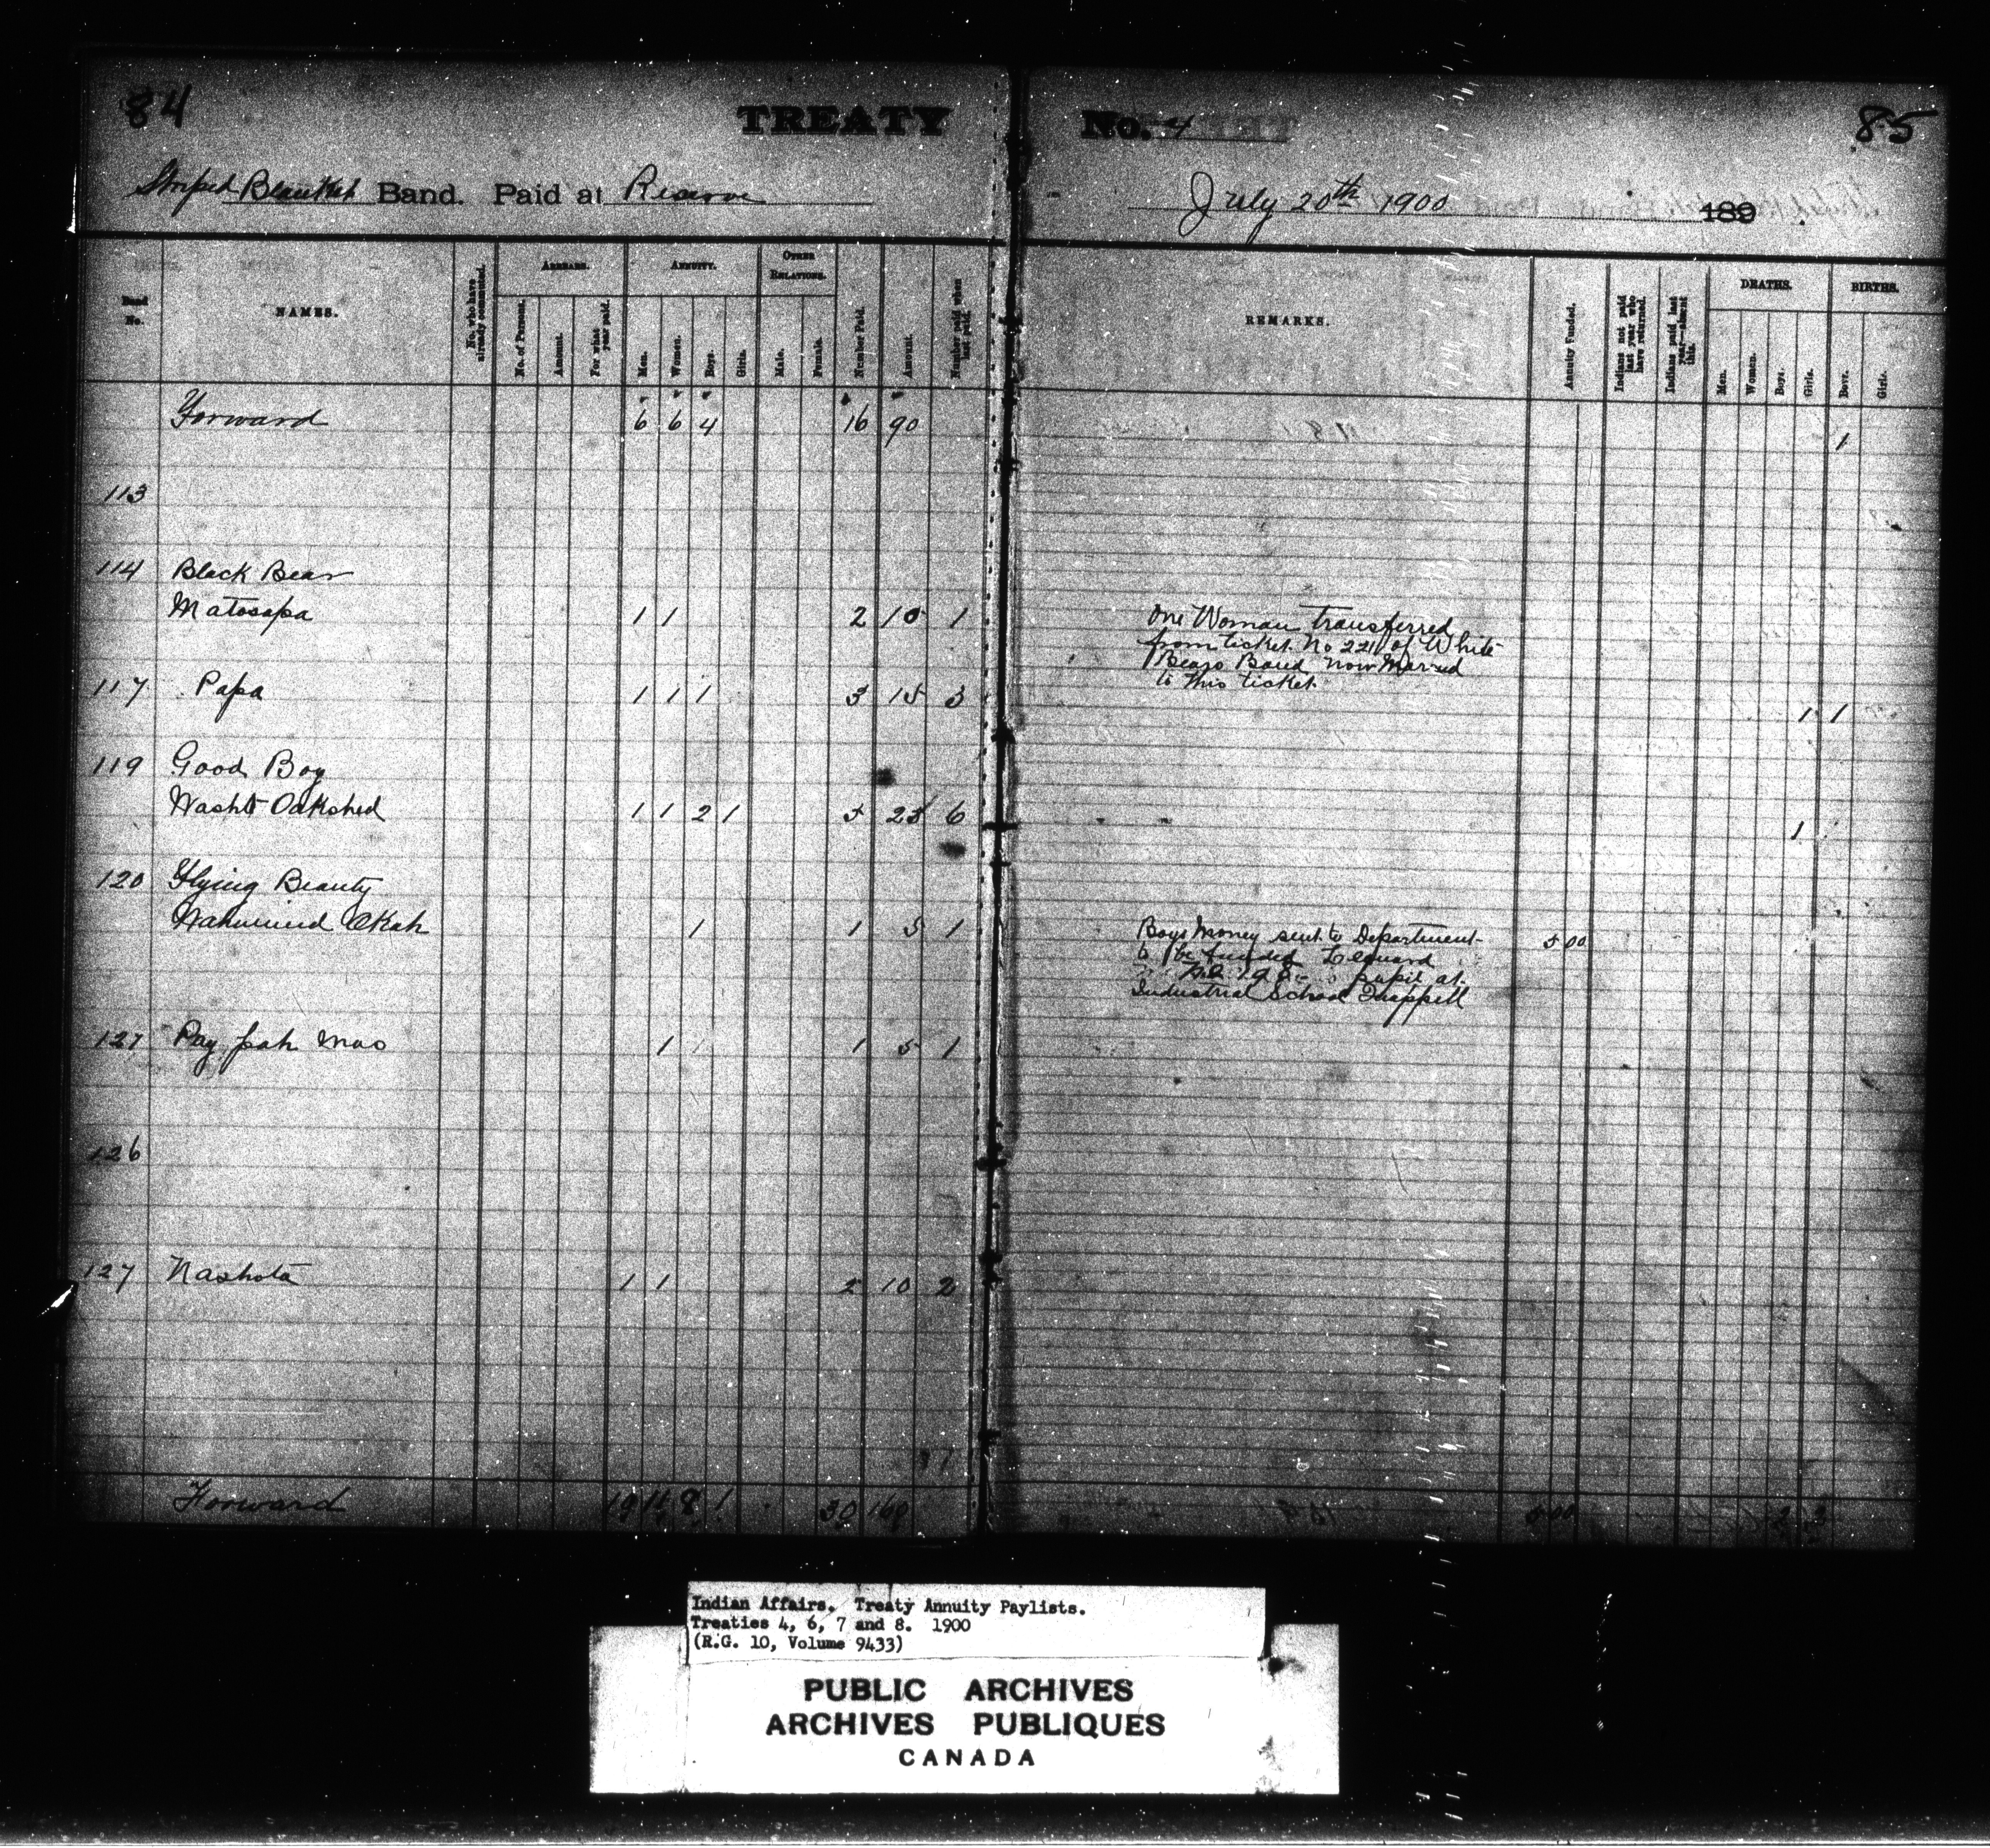 84
TREATY
No. 4
85
Striped Blanket Band. Paid at Reserve
July 20th 1900 189
Band No.
NAMES.
No. who have already commuted.
ARREARS.
No. of Persons.
Amount.
For what year paid.
ANNUITY.
Men.
Women.
Boys.
Girls.
OTHER RELATIONS.
Male.
Female.
Number Paid.
Amount.
Number paid when last paid.
REMARKS.
Annuity Funded.
Indians not paid last year who have returned.
Indians paid last year—absent this.
DEATHS.
Men.
Women.
Boys.
Girls.
BIRTHS.
Boys.
Girls.
Forward 6 6 4 16 90 1
113
114 Black Bear
Matosapa 1 1 2 10 1
One Woman transferred
from ticket No 221 of White
Bears Band now Married
to this ticket.
117 Papa 1 1 1 3 15 3 1 1
119 Good Boy
Washt Oakshed 1 1 2 1 5 25 6 1
120 Flying Beauty
Okah 1 1 5 1
Boys Money sent to Department 5 00
to be funded Leonard
pupil at
Industrial School Quappell
Pay pah mao 1 1 5 1
126
127 Nashota 1 1 2 10 2
Forward 8 1 30 160 5 00
Indian Affairs. Treaty Annuity Paylists.
Treaties 4, 6, 7 and 8. 1900
(R.G. 10, Volume 9433)
PUBLIC ARCHIVES
ARCHIVES PUBLIQUES
CANADA